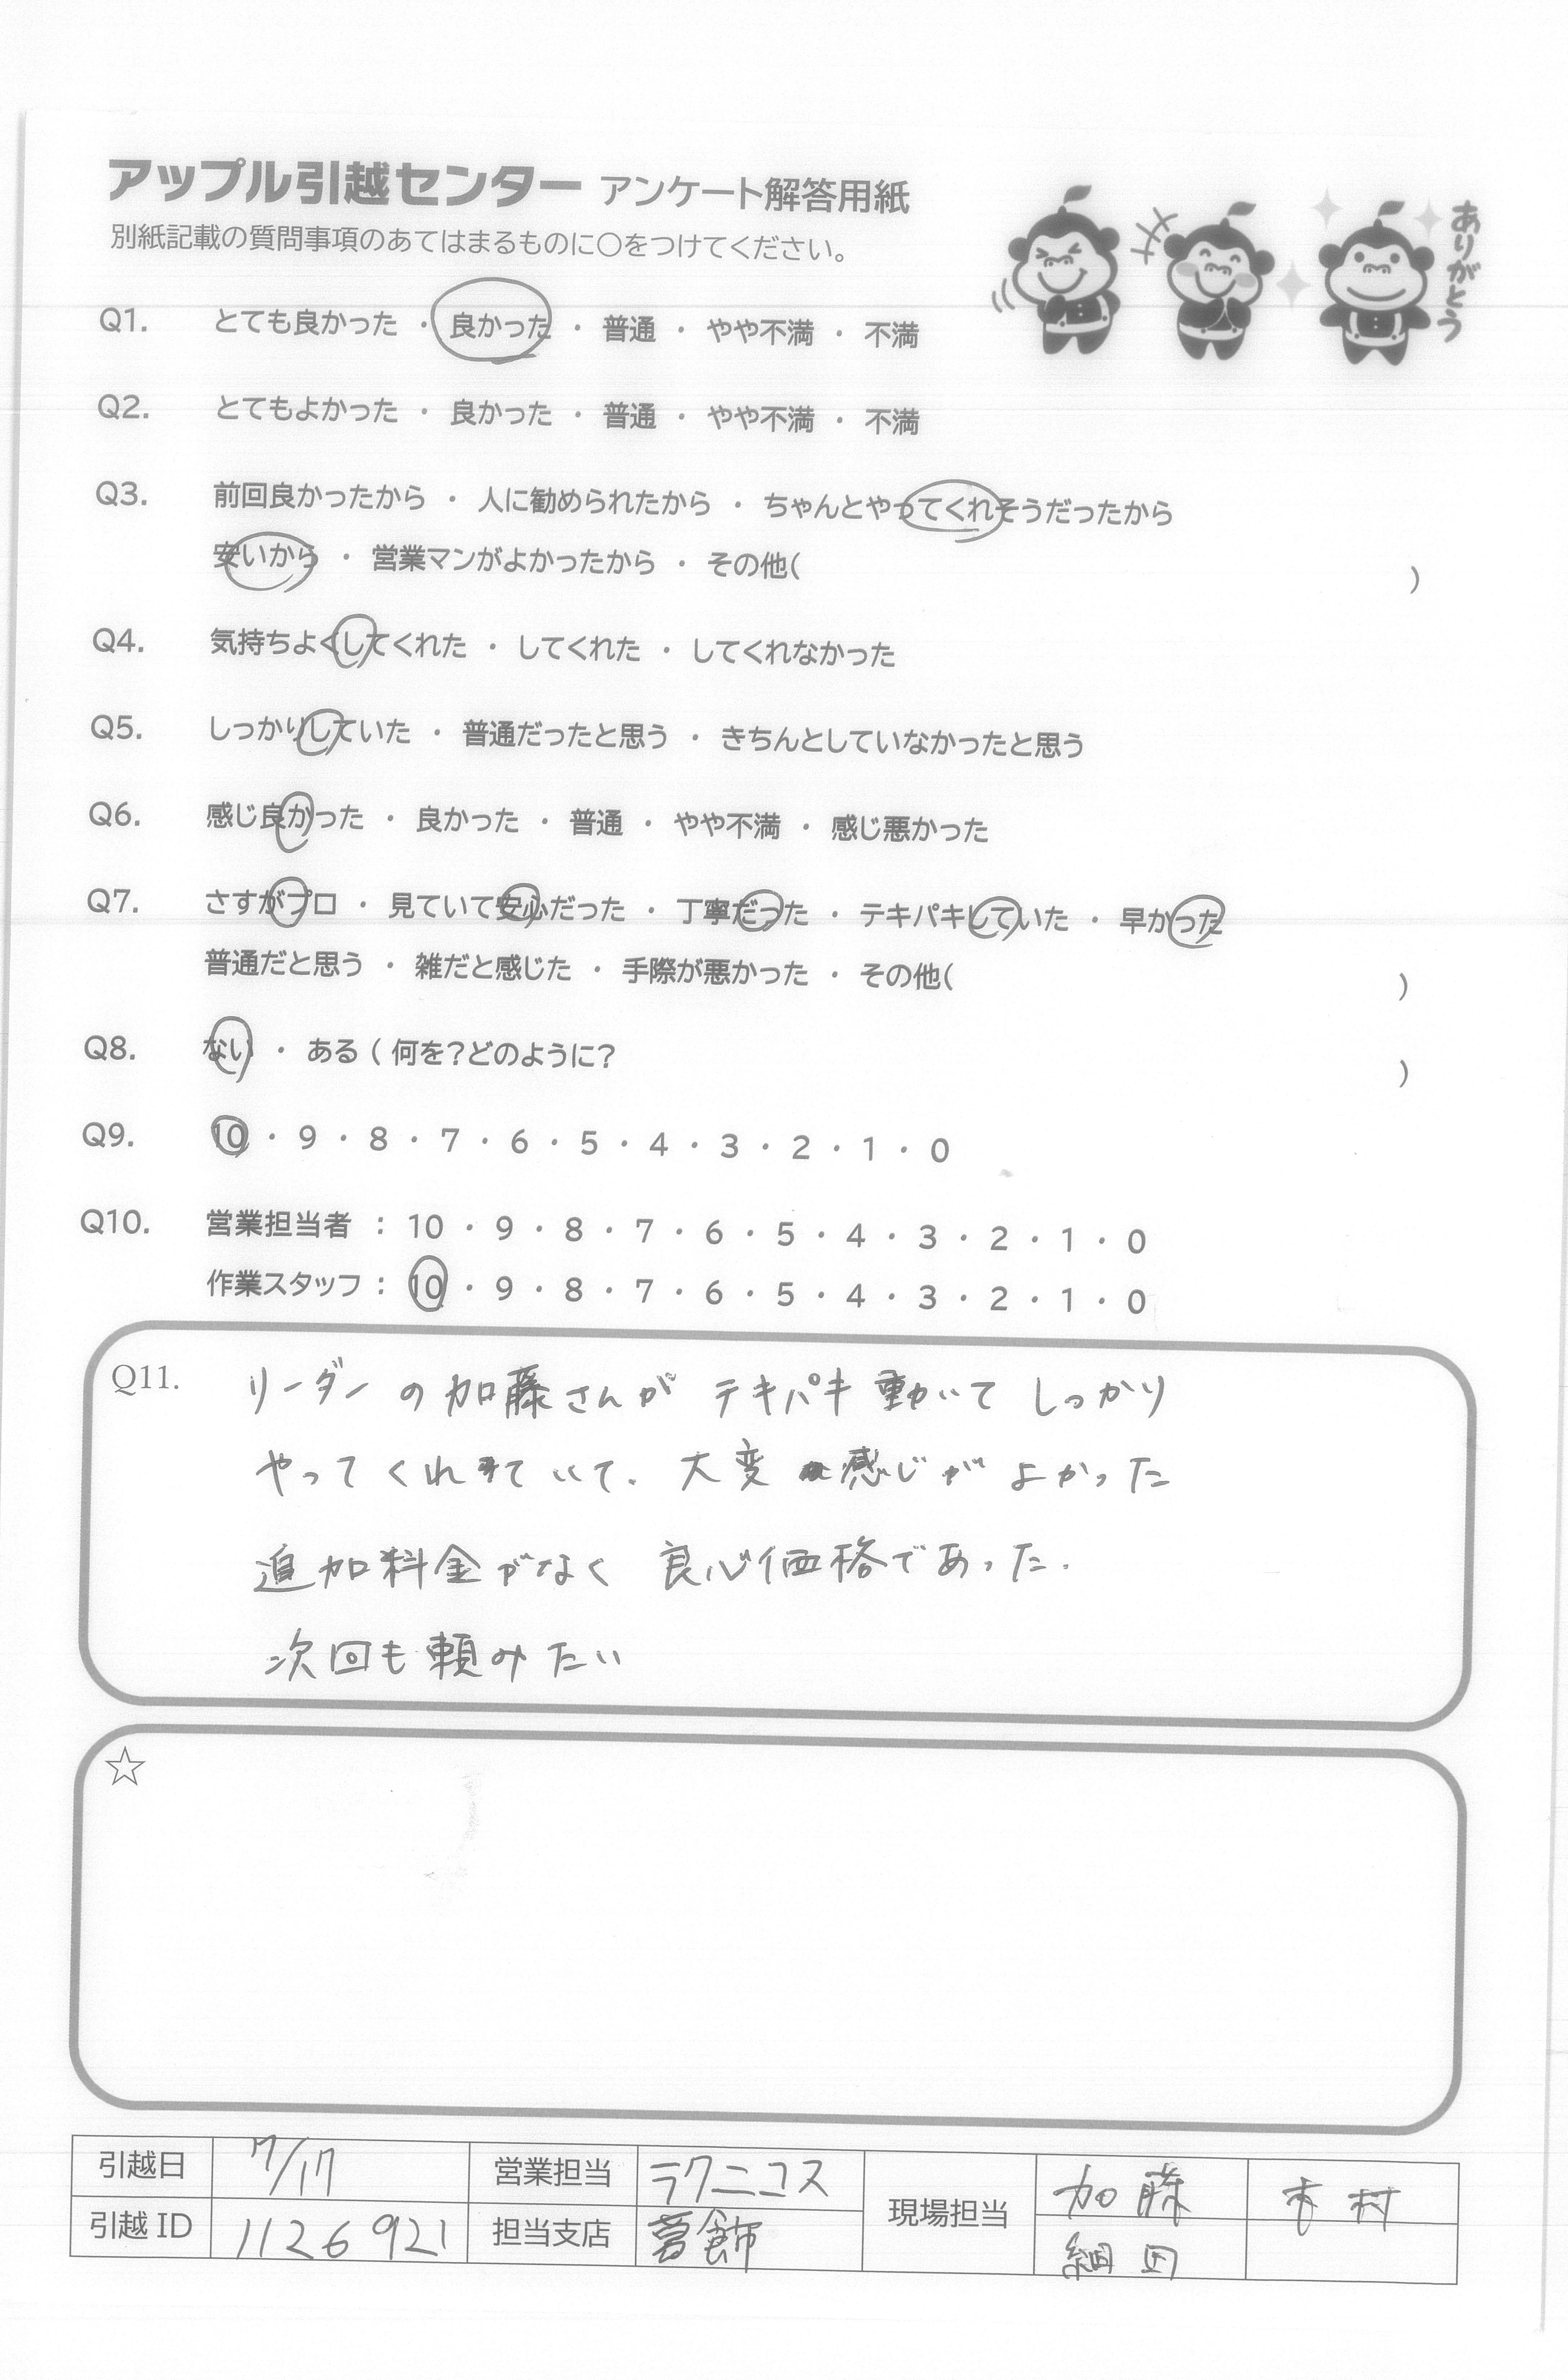 アップル引越センター アンケート解答用紙
別紙記載の質問事項のあてはまるものに○をつけてください。
ありがとう
Q1. とても良かった ・ 良かった ・ 普通 ・ やや不満 ・ 不満
Q2. とてもよかった ・ 良かった ・ 普通 ・ やや不満 ・ 不満
Q3. 前回良かったから ・ 人に勧められたから ・ ちゃんとやってくれそうだったから
安いから ・ 営業マンがよかったから ・ その他( )
Q4. 気持ちよくしてくれた ・ してくれた ・ してくれなかった
Q5. しっかりしていた ・ 普通だったと思う ・ きちんとしていなかったと思う
Q6. 感じ良かった ・ 良かった ・ 普通 ・ やや不満 ・ 感じ悪かった
Q7. さすがプロ ・ 見ていて安心だった ・ 丁寧だった ・ テキパキしていた ・ 早かった
普通だと思う ・ 雑だと感じた ・ 手際が悪かった ・ その他( )
Q8. ない ・ ある ( 何を?どのように? )
Q9. 10 ・ 9 ・ 8 ・ 7 ・ 6 ・ 5 ・ 4 ・ 3 ・ 2 ・ 1 ・ 0
Q10. 営業担当者 : 10 ・ 9 ・ 8 ・ 7 ・ 6 ・ 5 ・ 4 ・ 3 ・ 2 ・ 1 ・ 0
作業スタッフ : 10 ・ 9 ・ 8 ・ 7 ・ 6 ・ 5 ・ 4 ・ 3 ・ 2 ・ 1 ・ 0
Q11. リーダーの加藤さんが テキパキ動いて しっかり
やってくれていて. 大変 感じが よかった
追加料金がなく 良心価格であった.
次回も頼みたい
☆
引越日 7/17 営業担当 ラクニコス 現場担当 加藤 村
引越 ID 1126921 担当支店 葛飾 細田